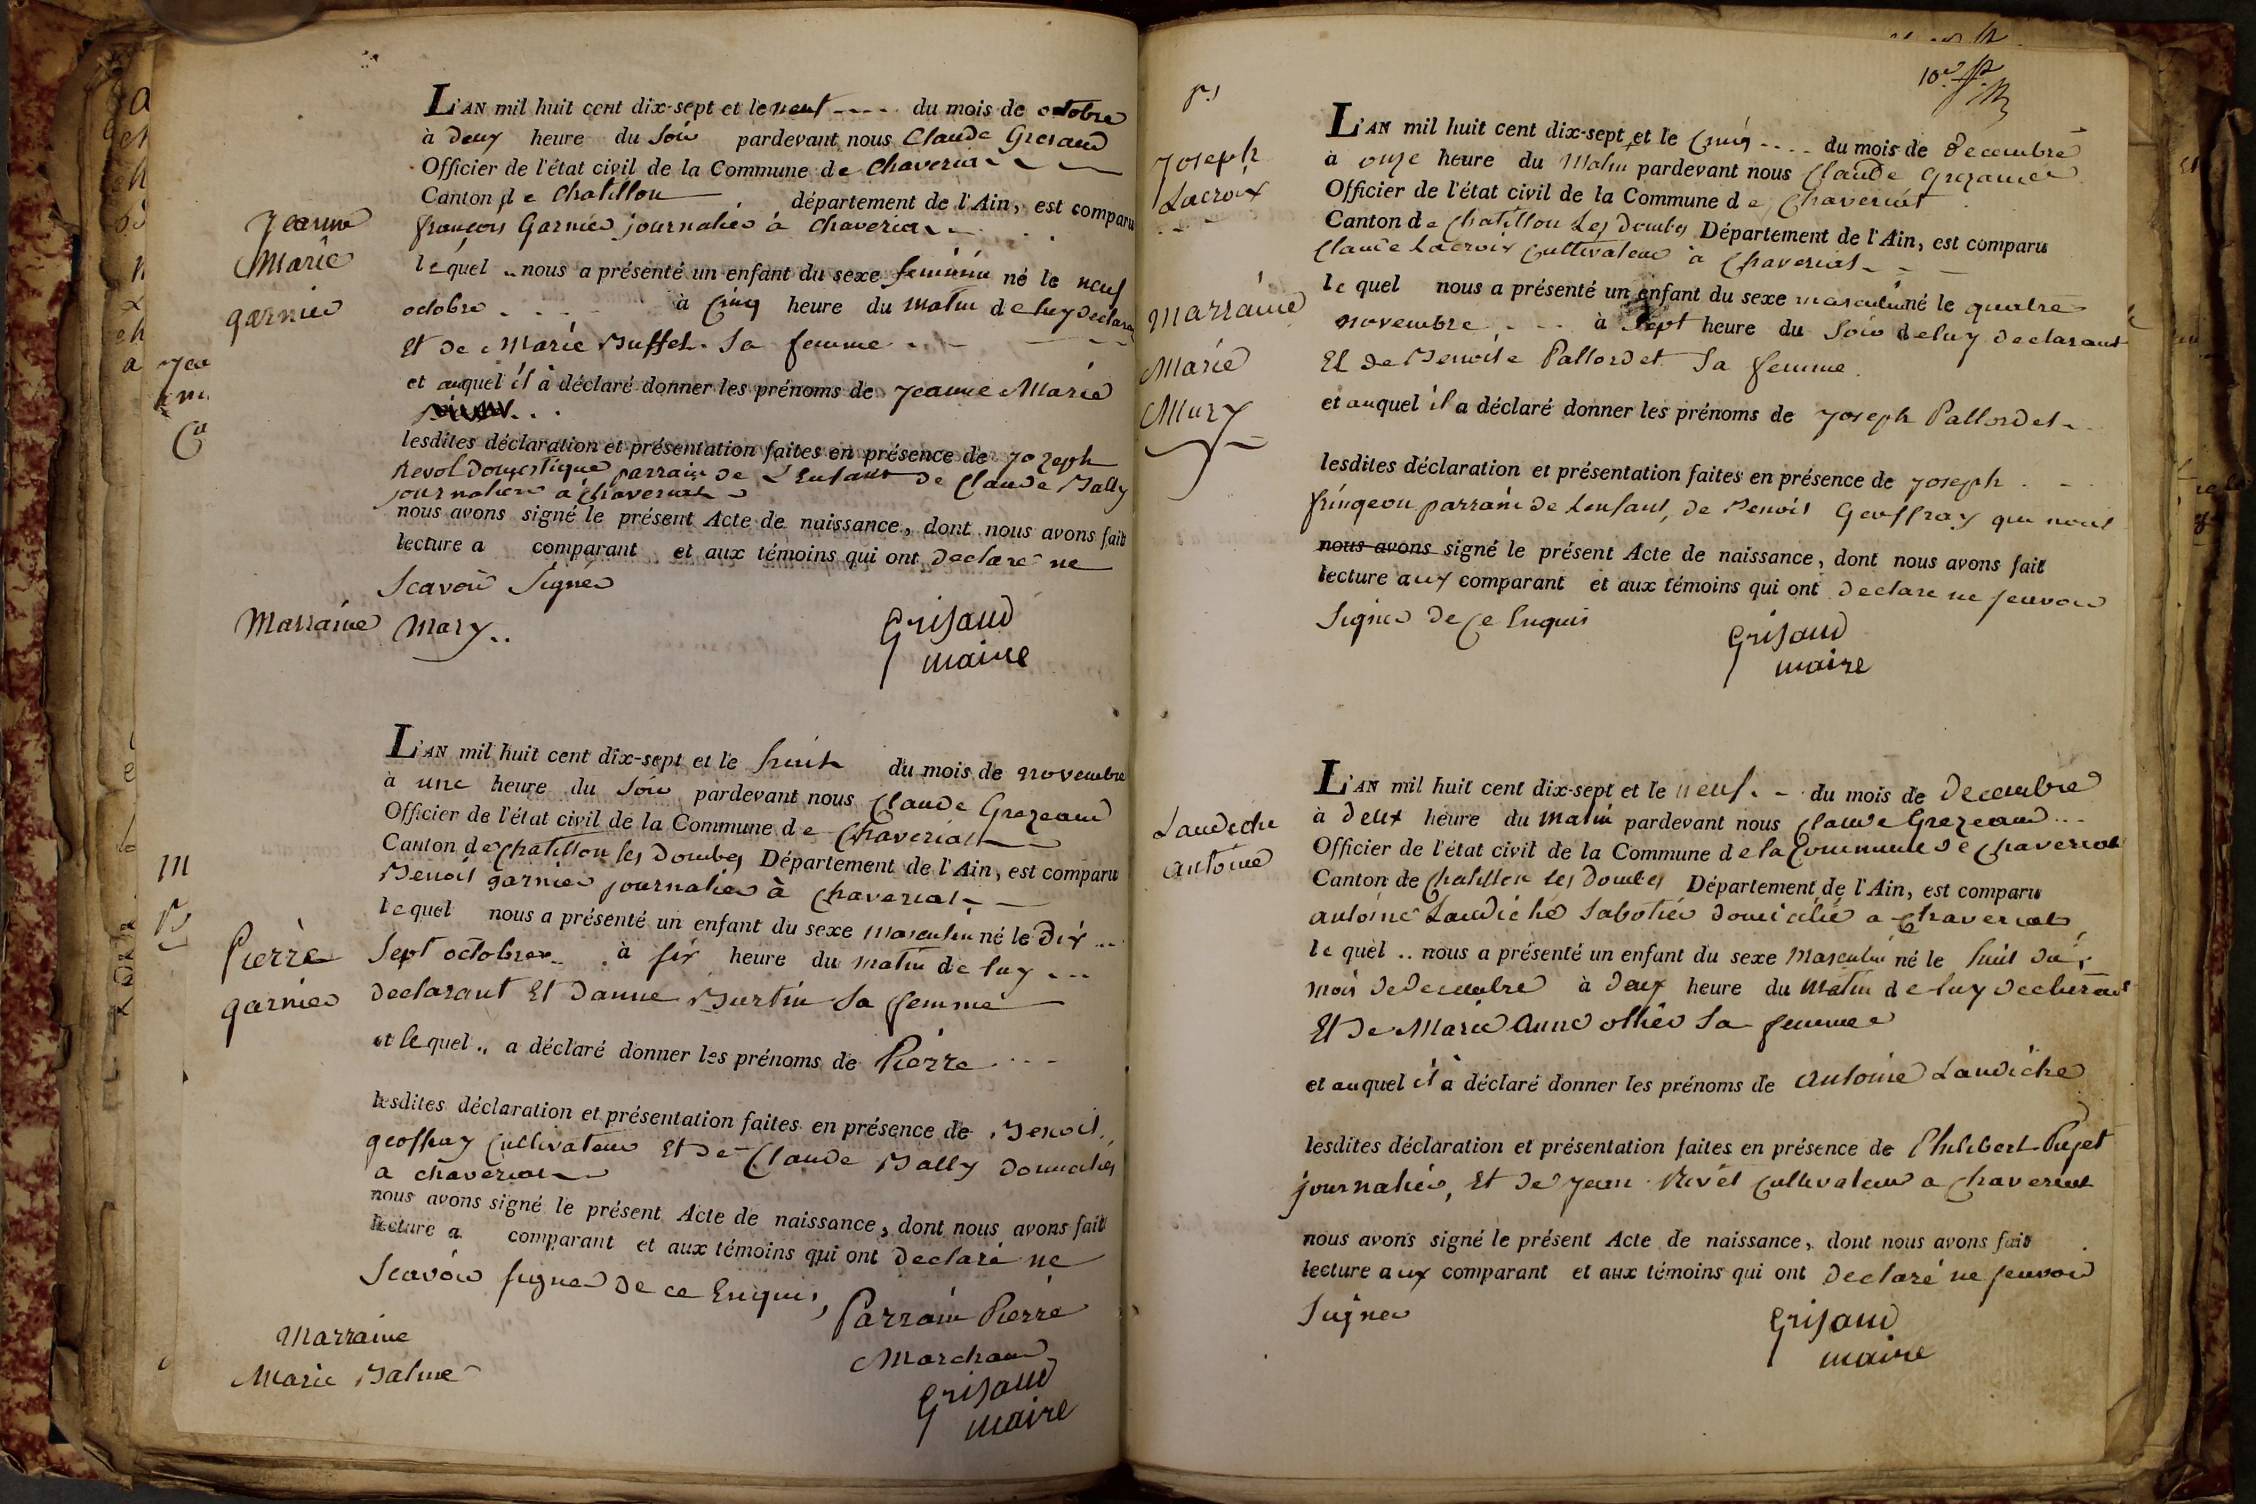 L'AN mil huit cent dix-sept et le neuf ---- du mois de octobre
à deux heure du Soir pardevant nous Claude Gresaud
Officier de l'état civil de la Commune de Chaveria
Canton de Chatillon département de l'Ain, est comparu
françois Garnier journalier à Chaveria
Jeanne
Marie
garnier
lequel nous a présenté un enfant du sexe feminin né le neuf
octobre à Cinq heure du matin de luy declara
Et de Marie Buffet Sa femme
et auquel il à déclaré donner les prénoms de Jeanne Marie
lesdites déclaration et présentation faites en présence de Jozeph
Revol Domestique parrain de L'Enfant de Claude Bally
journalier a Chaveriat
nous avons signé le présent Acte de naissance, dont nous avons fait
lecture a comparant et aux témoins qui ont declaré ne
Scavoir Signer
Marraine Mary
Grisaud
maire
L'AN mil huit cent dix-sept et le huit du mois de novembre
à une heure du Soir pardevant nous Claude Grezeaud
Officier de l'état civil de la Commune de Chaveriat
Canton de Chatillon les Dombes Département de l'Ain, est comparu
Benoit garnier journalier à Chaveriat
lequel nous a présenté un enfant du sexe Masculin né le Dix
Pierre
garnier
Sept octobre à six heure du matin de luy
declarant Et Danne Burtin Sa femme
et lequel a déclaré donner les prénoms de Pierre
lesdites déclaration et présentation faites en présence de Benoit
geoffray Cultivateur Et De Claude Bally
a chaveriat
nous avons signé le présent Acte de naissance, dont nous avons fait
lecture a comparant et aux témoins qui ont declaré ne
Scavoir signer De ce Enquis,
Parrain Pierre
Marchand
Marraine
Marie Balme
Grisaud
maire
Joseph
Lacroix
marraine
Marie
Mury
L'AN mil huit cent dix-sept et le Cinq .... du mois de Decembre
à onze heure du Matin pardevant nous Claude
Officier de l'état civil de la Commune de Chaveriat
Canton de Chatillon Les Dombes Département de l'Ain, est comparu
Claude Lacroix Cultivateur à Chaveriat
le quel nous a présenté un enfant du sexe masculin né le quatre
novembre à Sept heure du Soir de luy declarant
Et De Benoite Pallordet Sa femme
et auquel il a déclaré donner les prénoms de Joseph Pallordet
lesdites déclaration et présentation faites en présence de Joseph
fringeon parrain de Lenfant, de Benoit Geoffray que nous
nous avons signé le présent Acte de naissance, dont nous avons fait
lecture aux comparant et aux témoins qui ont declare ne scavoir
Signer De Ce Enquis
Grisaud
maire
Laudiche
antoine
L'AN mil huit cent dix-sept et le neuf du mois de Decembre
à Deux heure du matin pardevant nous Claude Grezeaud
Officier de l'état civil de la Commune de la Commune De Chaveriat
Canton de Chatillon Les Dombes Département de l'Ain, est comparu
antoine Laudiché Sabotier domicilié a Chaveriat
le quel .. nous a présenté un enfant du sexe Masculin né le huit du
mois de decembre à deux heure du Matin de luy declarant
Et De Marie Anne ollier Sa femme
et auquel il à déclaré donner les prénoms de Antoine Laudiche
lesdites déclaration et présentation faites en présence de Philibert Pujet
journalier, Et De Jean Rivét Cultivateur a Chaveriat
nous avons signé le présent Acte de naissance, dont nous avons fait
lecture aux comparant et aux témoins qui ont declaré ne scavoir
Signer
Grisaud
maire